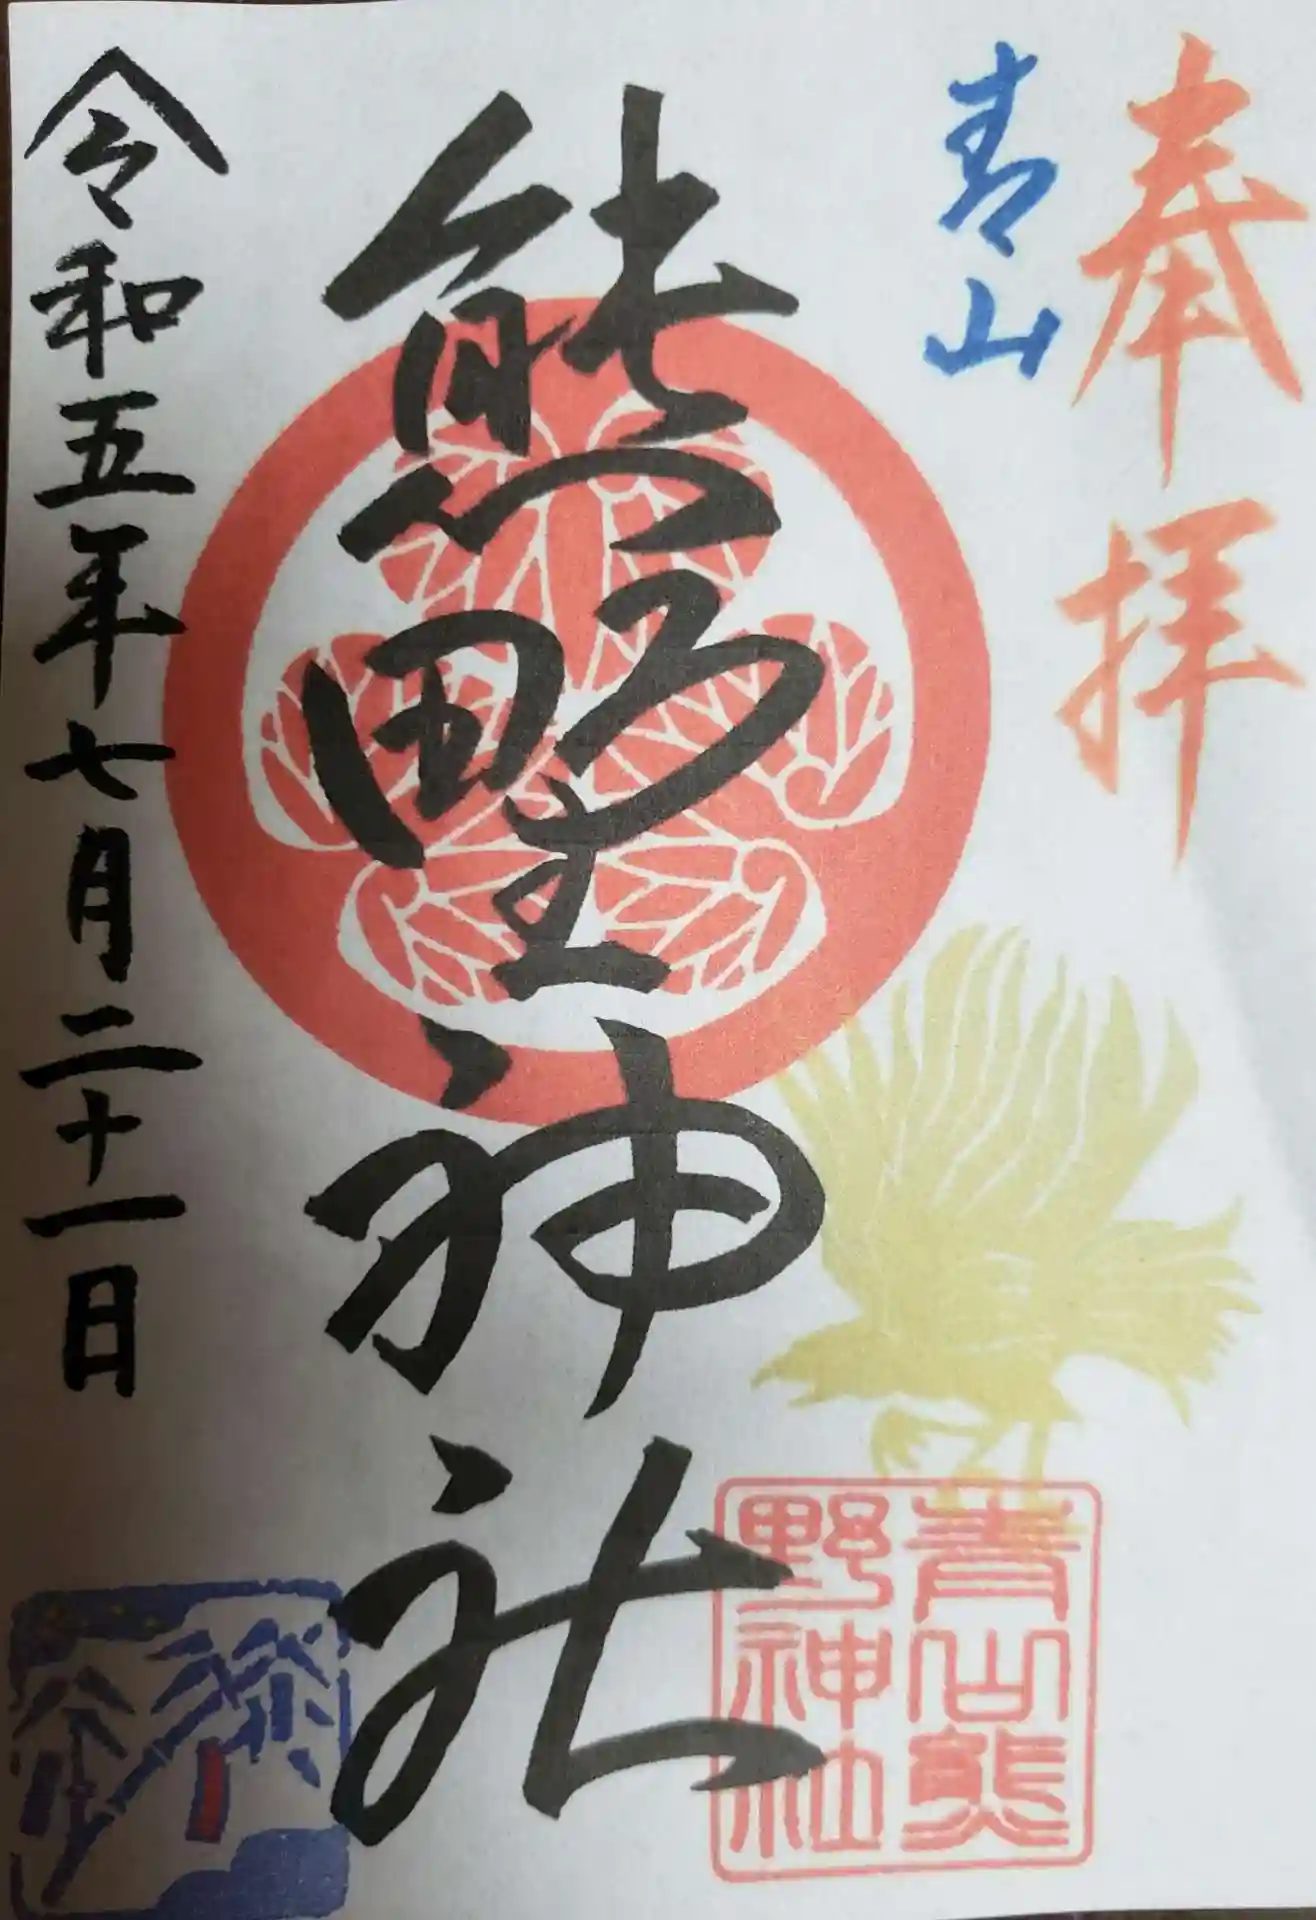 奉拝
青山
熊野神社
青山熊
野神社
令和五年七月二十一日